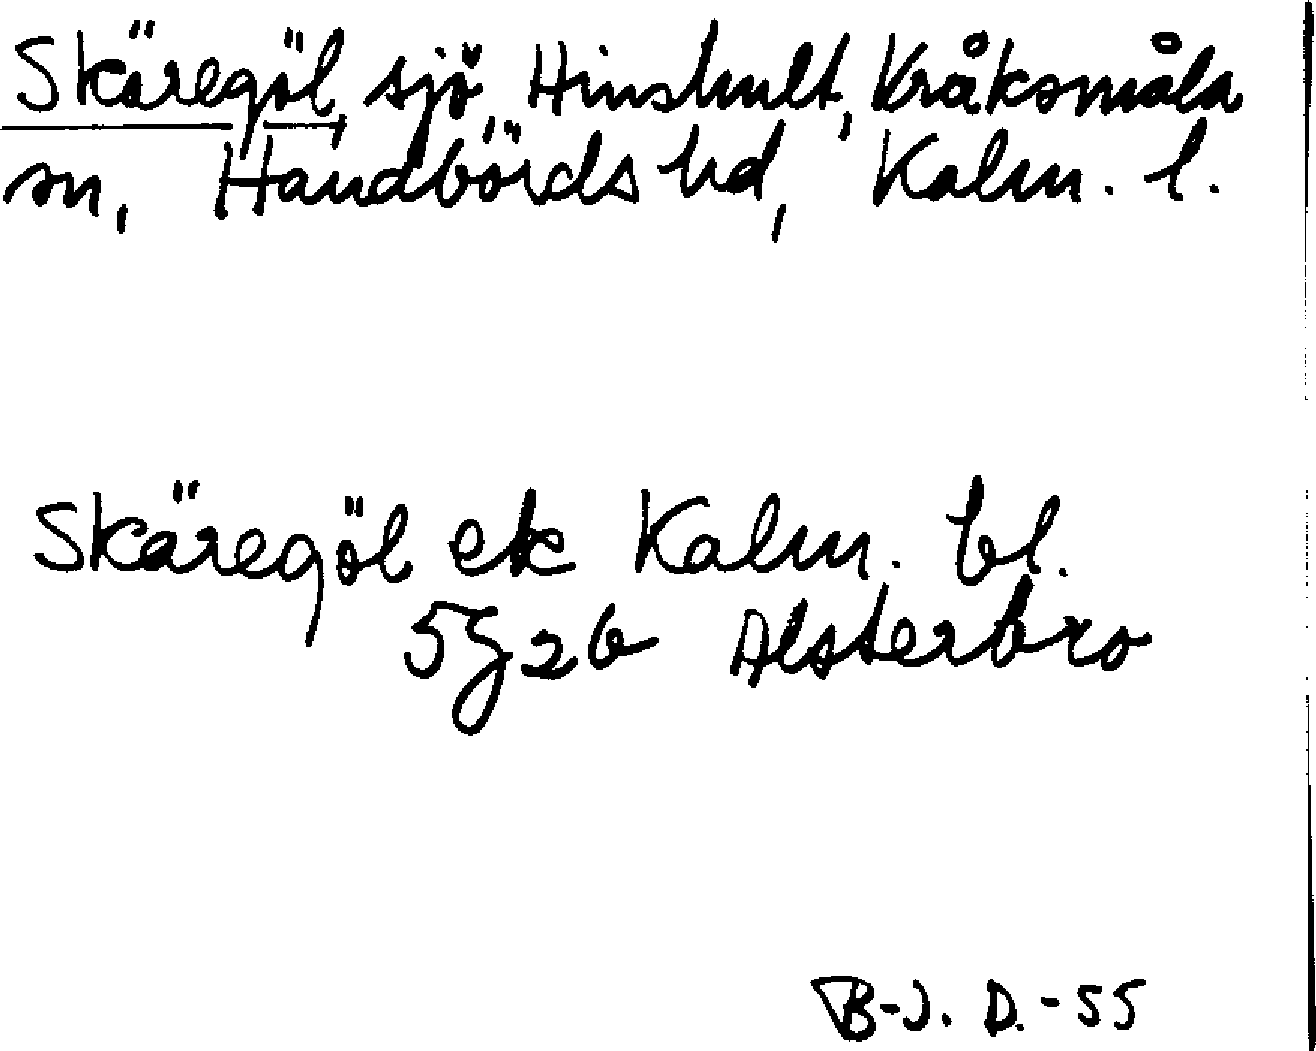 Skäregöl, sjö, Hinshult, Kråksmåla
sn, Handbörds hd, Kalm. l.
Skäregöl ek Kalm. bl.
5G2b Alsterbro
B-J. D.-55